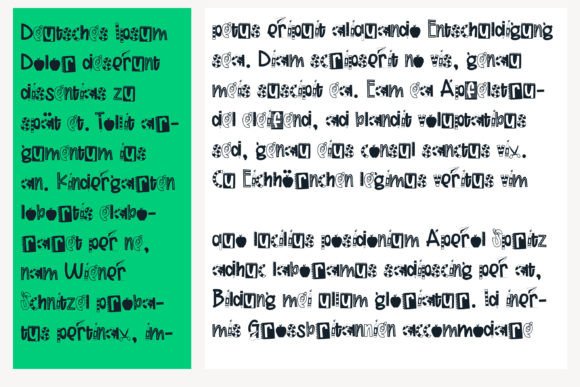 Deutsches Ipsum
Dolor deserunt
dissentias zu
spät et. Tollit ar-
gumentum ius
an. Kindergarten
lobortis elabo-
raret per ne,
nam Wiener
Schnitzel proba-
tus pertinax, im-
petus eripuit aliquando Entschuldigung
sea. Diam scripserit no vis, genau
meis suscipit ea. Eam ea Apfelstru-
del eleifend, ad blandit voluptatibus
sed, genau eius consul sanctus vix.
Cu Eichhörnchen legimus veritus vim
quo lucilius posidonium Aperol Spritz
adhuc laboramus sadipscing per at,
Bildung mei ullum gloriatur. Id iner-
mis Grossbritannien accommodare